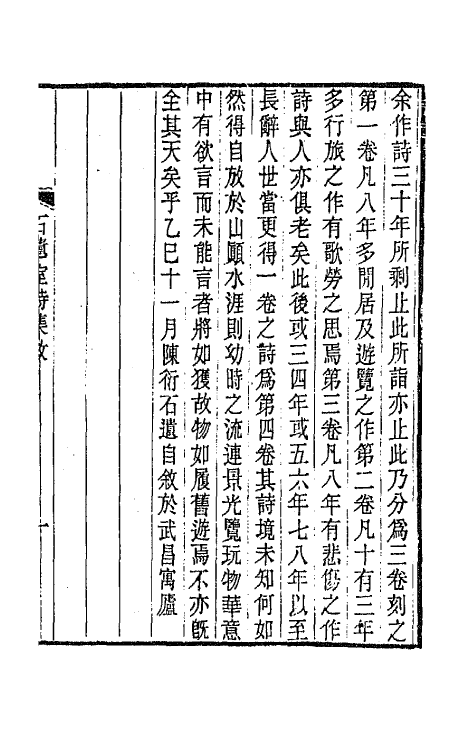 余作詩三十年所剩止此所詣亦止此乃分爲三卷刻之
第一卷凡八年多閒居及遊覽之作第二卷凡十有三年
多行旅之作有歌勞之思焉第三卷凡八年有悲傷之作
詩與人亦俱老矣此後或三四年或五六年七八年以至
長辭人世當更得一卷之詩爲第四卷其詩境未知何如
然得自放於山顚水涯則幼時之流連景光覽玩物華意
中有欲言而未能言者將如獲故物如履舊遊焉不亦旣
全其天矣乎乙巳十一月陳衍石遺自敘於武昌寓廬
石遺室詩集敘
一